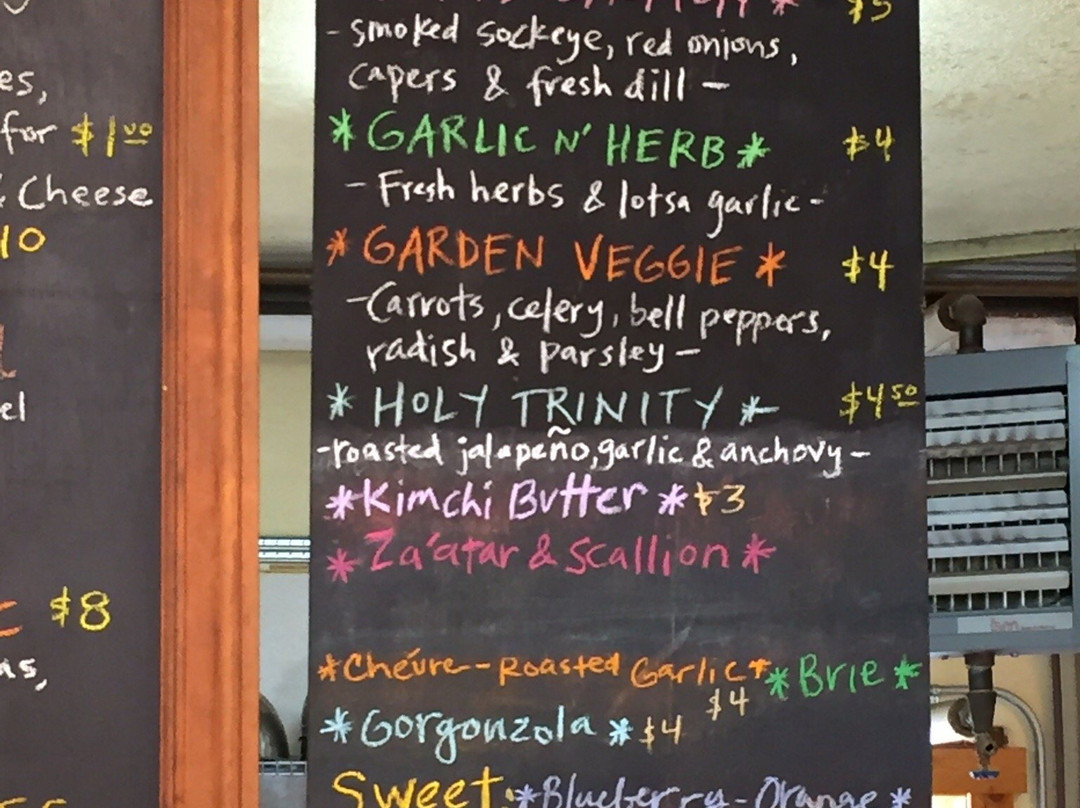 es,
for $1.00
& Cheese
10
el
$8
as,
$5
- smoked sockeye, red onions,
capers & fresh dill -
* GARLIC N' HERB * $4
- Fresh herbs & lotsa garlic -
* GARDEN VEGGIE * $4
- Carrots, celery, bell peppers,
radish & parsley -
* HOLY TRINITY * $4.50
- roasted jalapeño, garlic & anchovy -
* Kimchi Butter * $3
* Za'atar & Scallion *
* Chèvre - Roasted Garlic * * Brie *
$4
* Gorgonzola * $4
Sweet: * Blueberry - Orange *